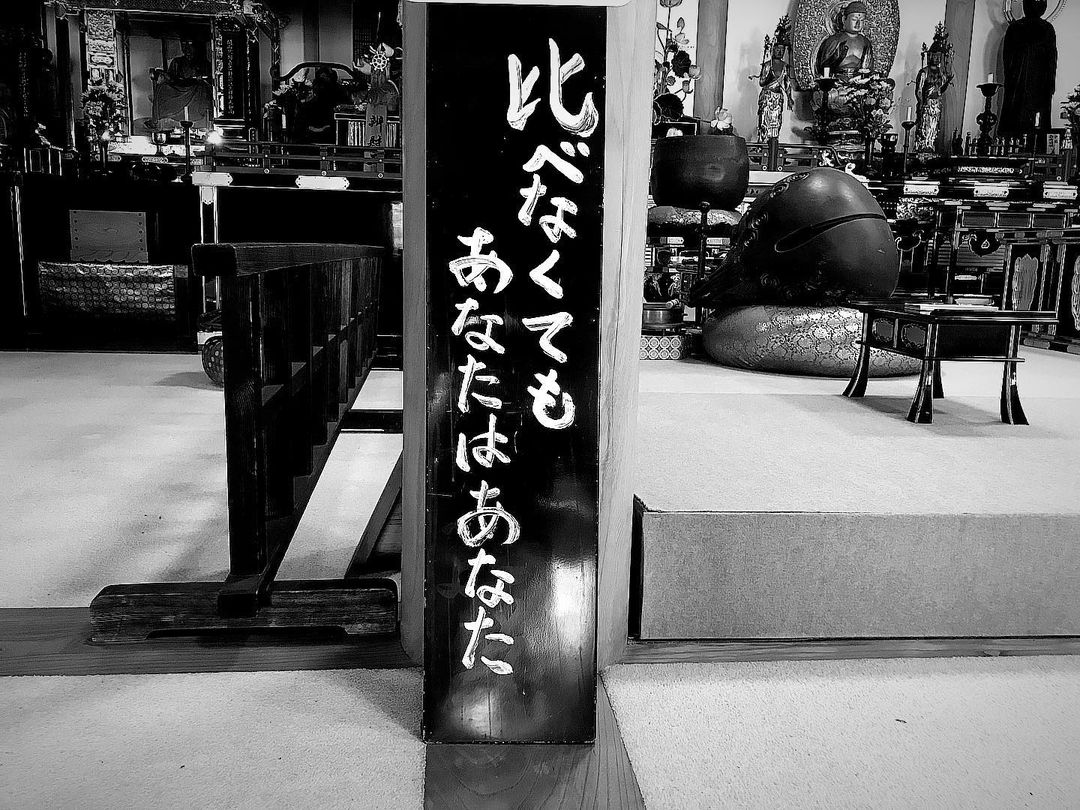 比べなくても
あなたはあなた